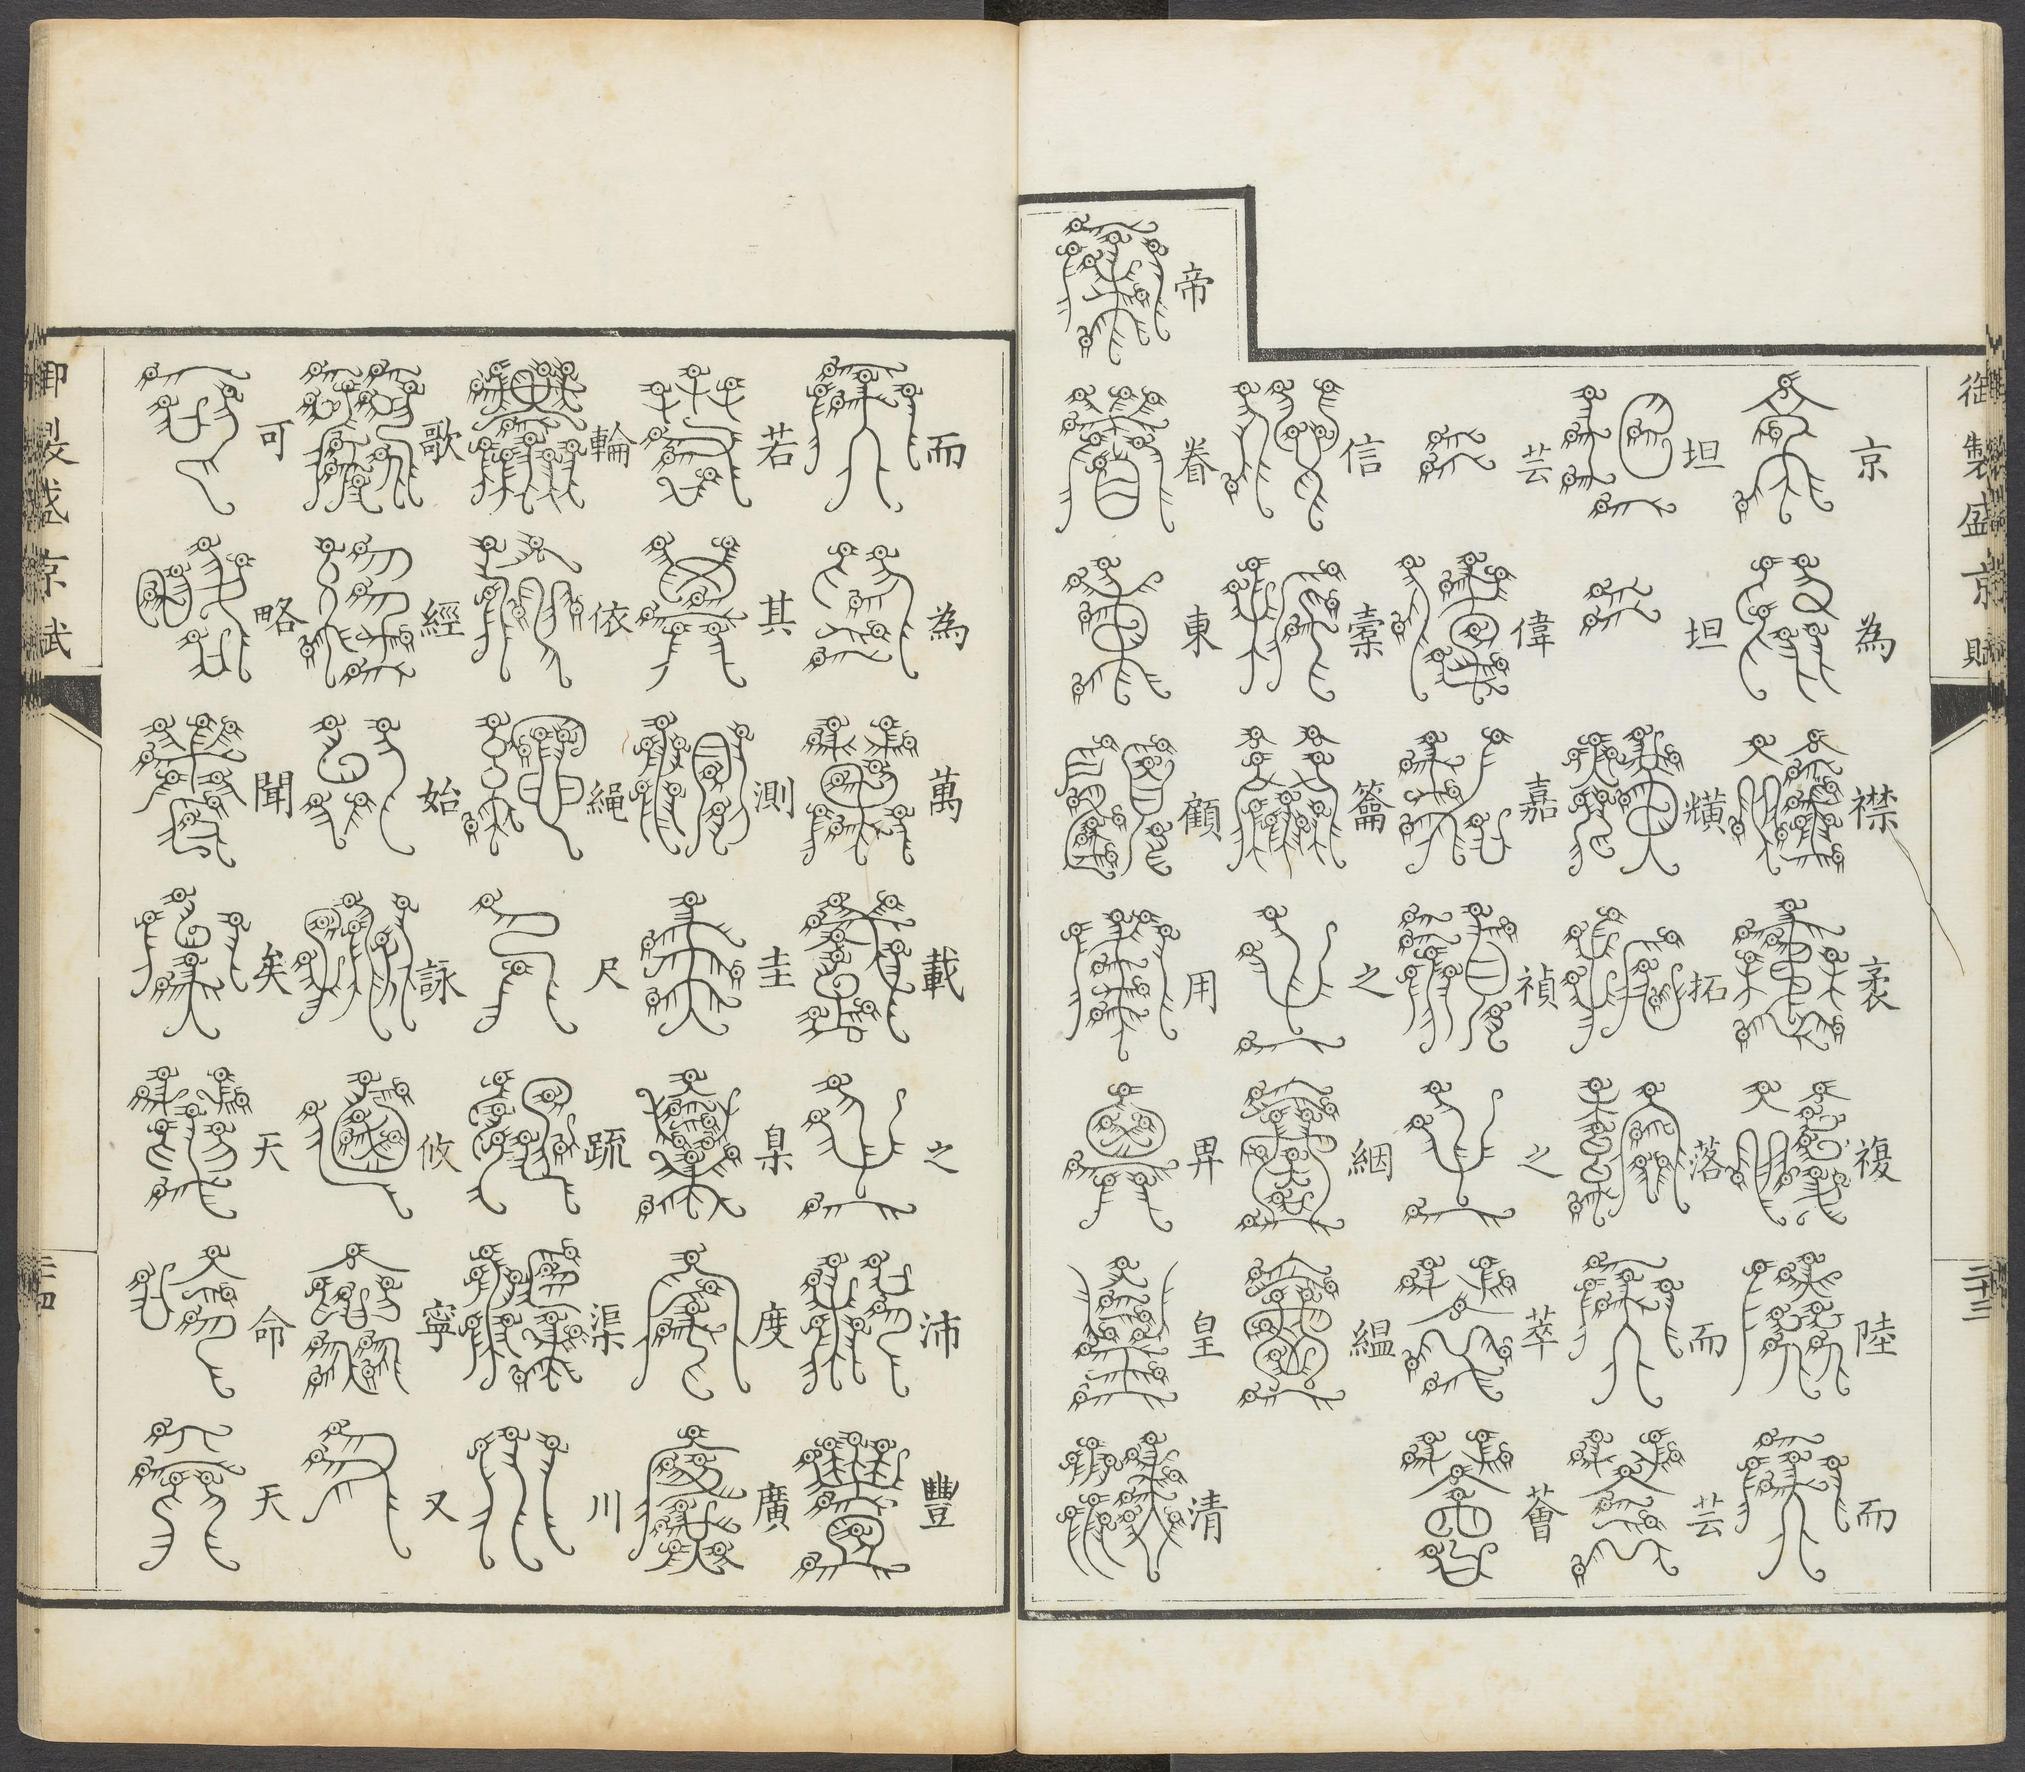 御製盛京賦 二十三
京為襟袤複陸而
坦坦拓落而芸
芸偉嘉禎之萃薈
信橐籥之絪縕
帝眷東顧用畀皇清
而為萬載之沛豐
若其測圭臬度廣
輪依繩尺疏渠川
歌經始詠攸寧又
可略聞矣天命天
御製盛京賦